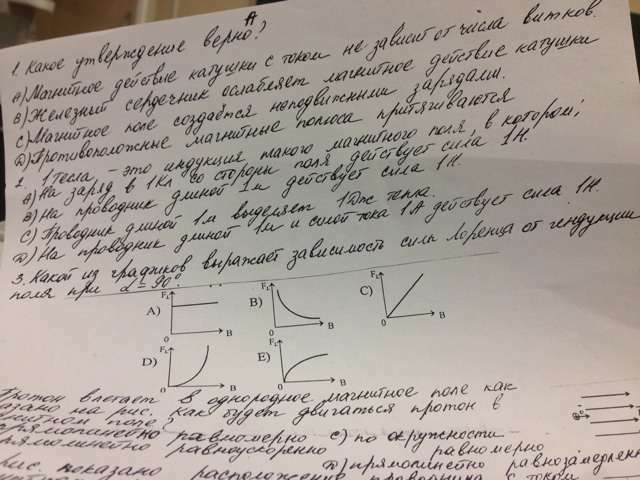 А
1. Какое утверждение верно?
А) Магнитное действие катушки с током не зависит от числа витков.
В) Железный сердечник ослабляет магнитное действие катушки
С) Магнитное поле создаётся неподвижными зарядами.
D) Противоположные магнитные полюса притягиваются
2. 1 тесла, - это индукция такого магнитного поля, в котором;
А) На заряд в 1Кл со стороны поля действует сила 1Н.
В) На проводник длиной 1м действует сила 1Н.
С) Проводник длиной 1м выделяет 1Дж тепла.
D) На проводник длиной 1м и силой тока 1А действует сила 1Н.
3. Какой из графиков выражает зависимость силы Лоренца от индукции
поля при α = 90°.
A) FL 0 B
B) FL 0 B
C) FL 0 B
D) FL 0 B
E) FL 0 B
Протон влетает в однородное магнитное поле как
на рис. Как будет двигаться протон в
поле?
равномерно С) по окружности
равноускоренно равномерно
D) прямолинейно
рис. показано расположение проводника с током